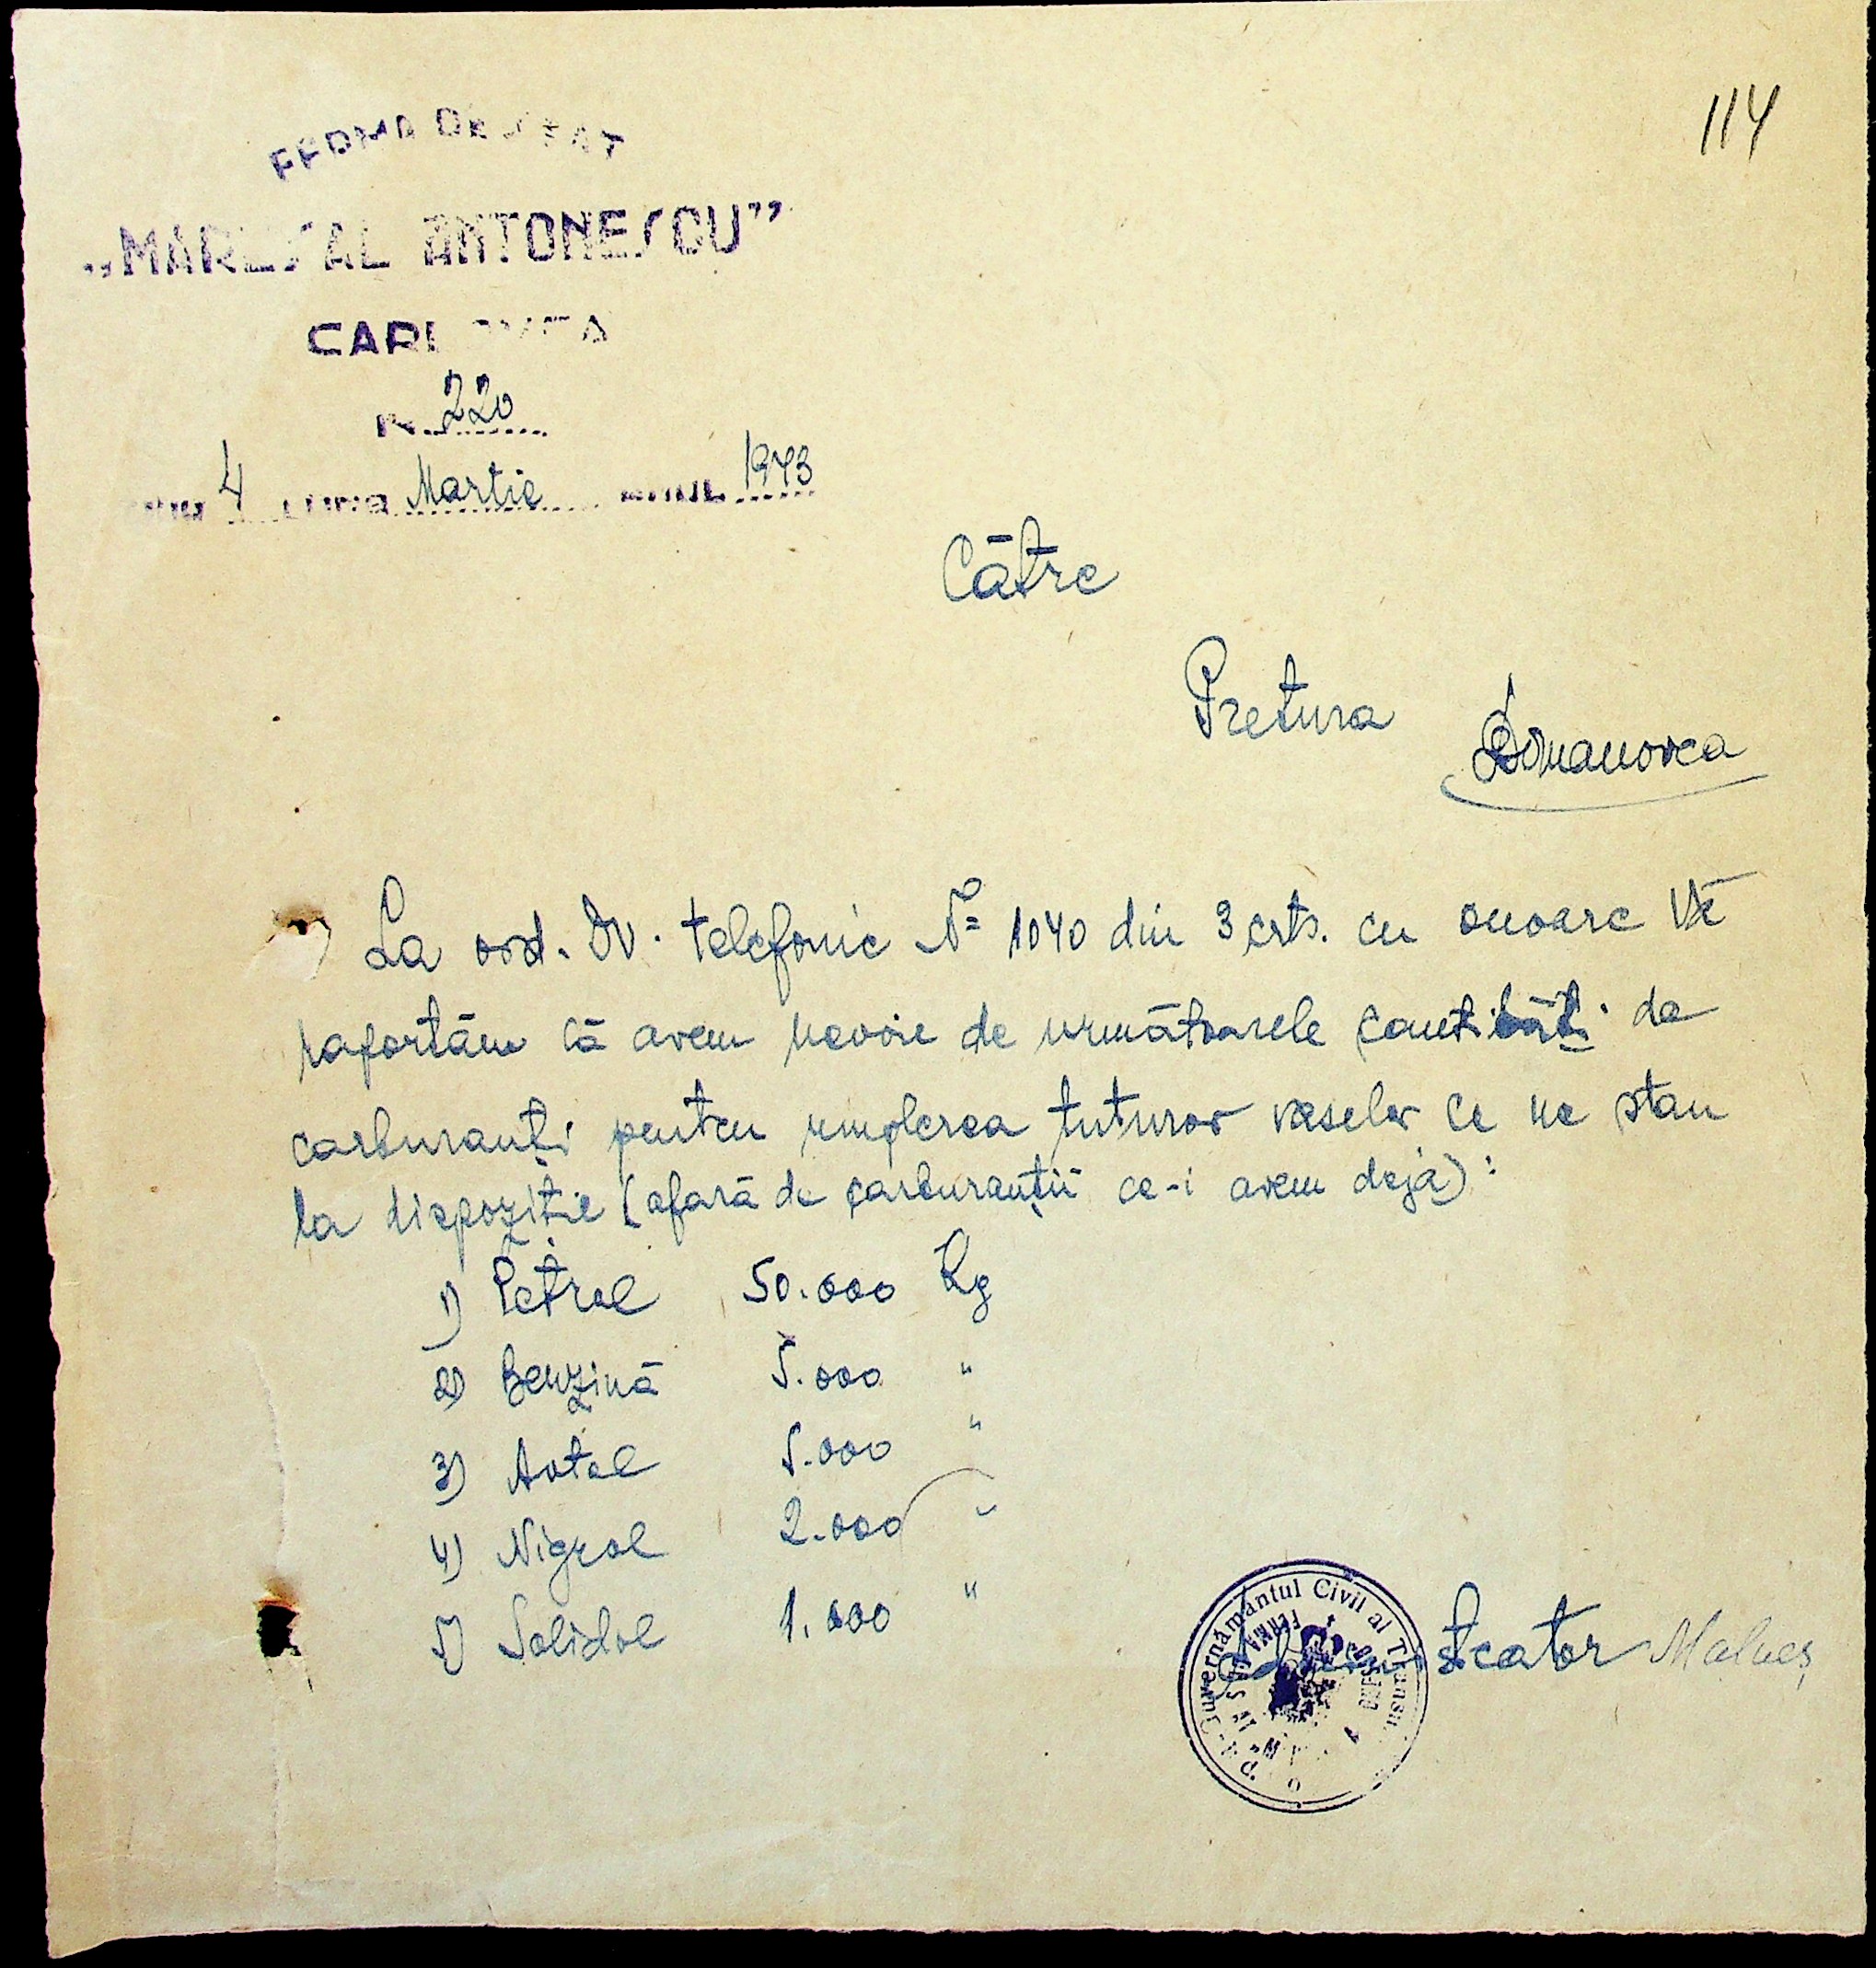 114
FERMA DE STAT
„MAREȘAL ANTONESCU”
CARL
N 220
4 LUNA Martie ANUL 1943
Cātre
Pretura Domanovca
La ord. Dv. telefonic No 1040 din 3 crts. cu onoare Vē
raportām cā avem nevoie de urmātoarele cantitāți de
carburanți pentru umplerea tuturor vaselor ce ne stau
la dispoziție (afarā de carburanții ce-i avem deja):
1) Petrol 50.000 Kg
2) Benzinā 5.000 "
3) Avtol 5.000 "
4) Nigrol 2.000 "
5) Solidol 1.000 "
Guvernământul Civil al Transn
FERMA